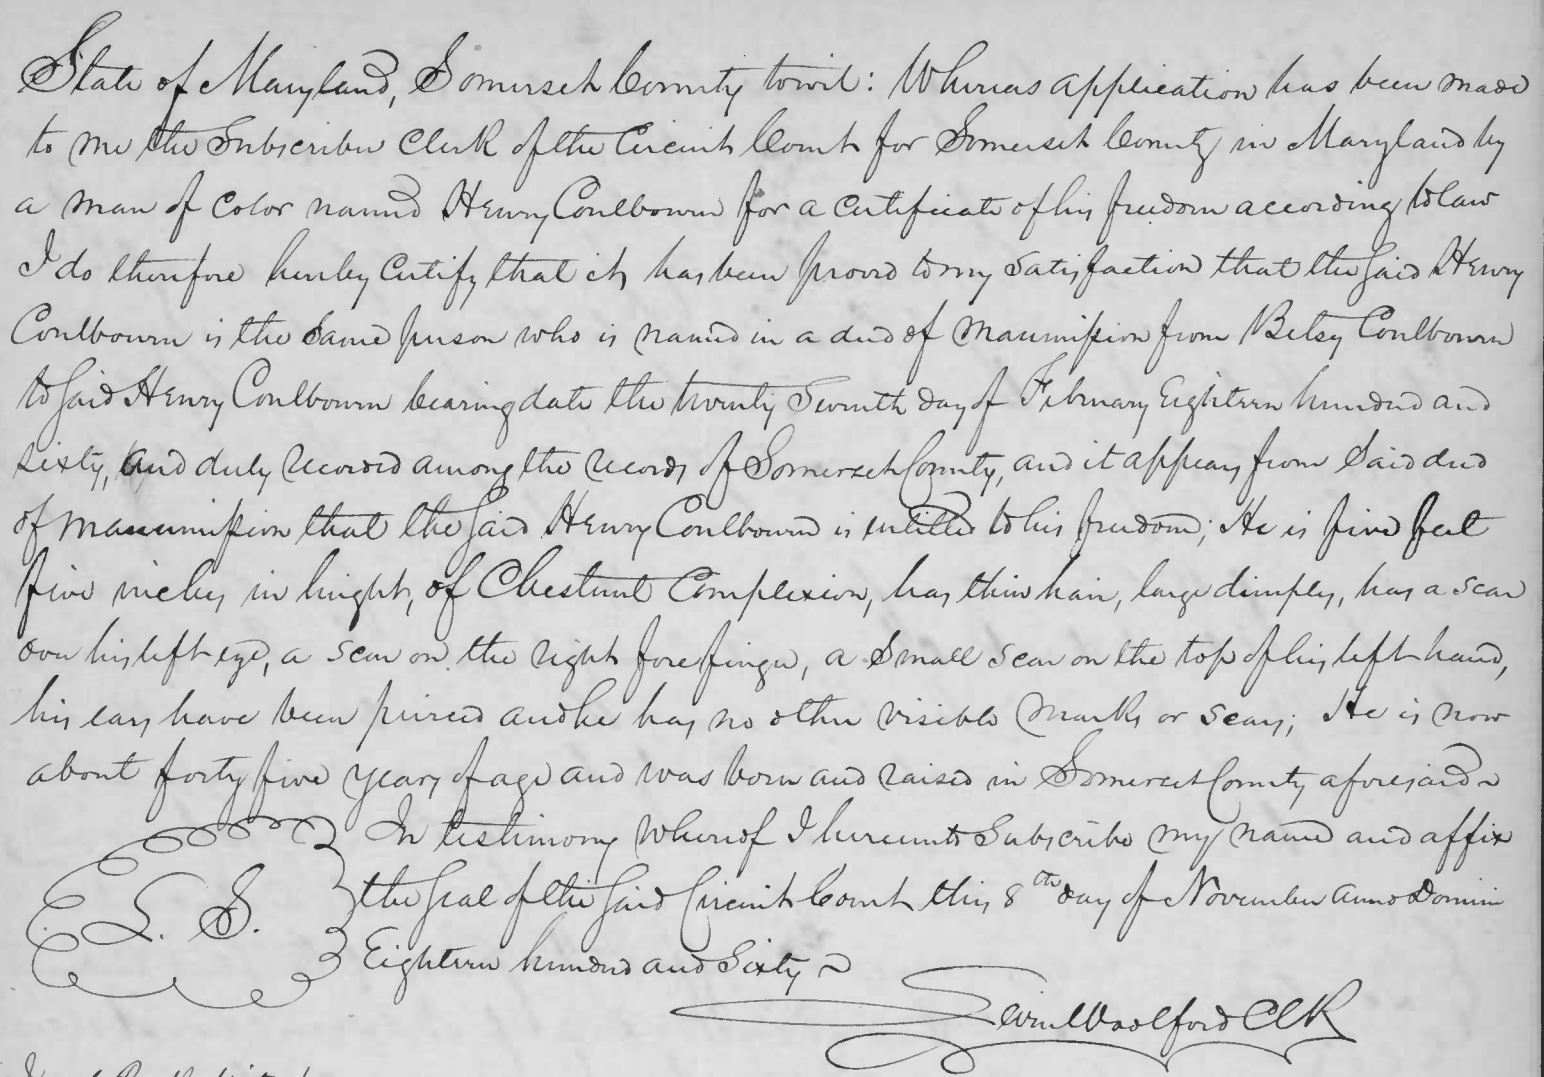 State of Maryland, Somerset County towit: Whereas application has been made
to me the Subscriber Clerk of the Circuit Court for Somerset County in Maryland by
a man of color named Henry Coulbourn for a certificate of his freedom according to law
I do therefore hereby certify that it has been proved to my satisfaction that the said Henry
Coulbourn is the same person who is named in a deed of manumission from Betsy Coulbourn
to said Henry Coulbourn bearing date the twenty Seventh day of February Eighteen hundred and
sixty, and duly recorded among the records of Somerset County, and it appears from said deed
of manumission that the said Henry Coulbourn is entitled to his freedom; He is five feet
five inches in hieght, of Chestnut Complexion, has thin hair, large dimples, has a scar
over his left eye, a scar on the right fore finger, a small scar on the top of his left hand,
his ears have been pierced and he has no other visible marks or scars; He is now
about forty five years of age and was born and raised in Somerset County aforesaid~
In testimony whereof I hereunto Subscribe my name and affix
the seal of the said Circuit Court this 8th day of November anno Domini
L. S.
Eighteen hundred and Sixty~
Levin Woolford Clk